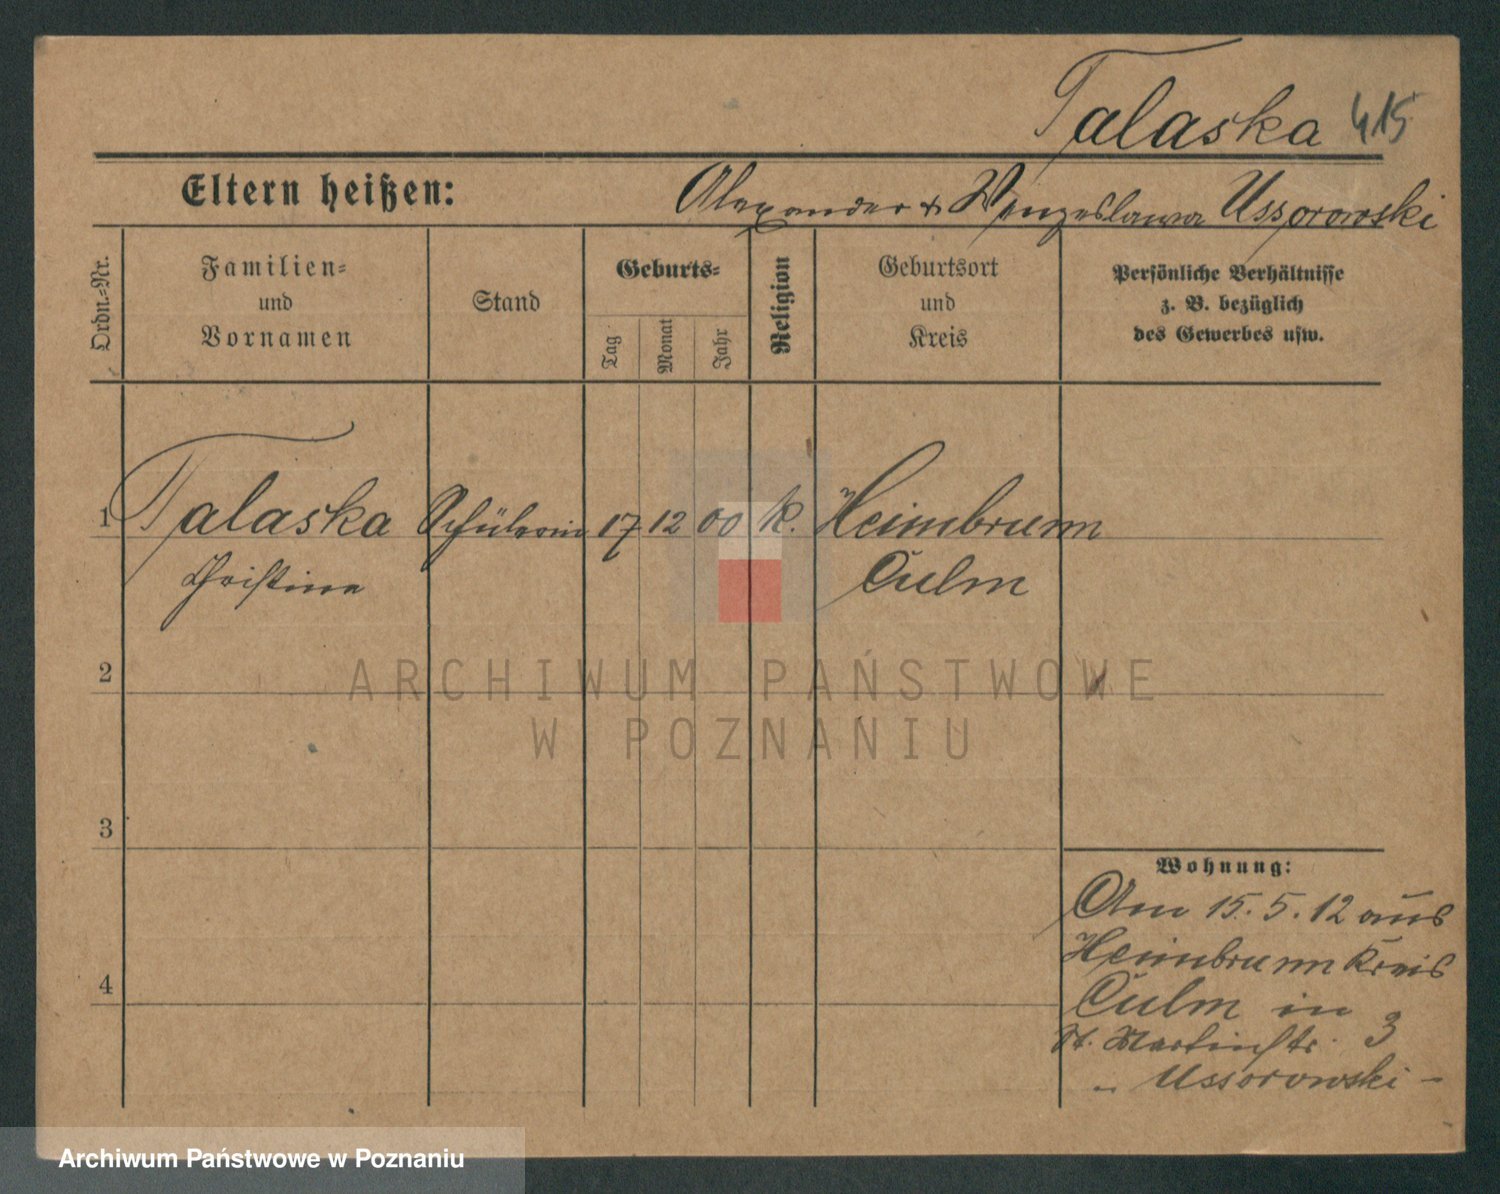 Talaska 415
Eltern heißen: Alexander & Wenzeslawa Ussorowski
Ordn.-Nr.
Familien-
und
Vornamen
Stand
Geburts-
Tag
Monat
Jahr
Religion
Geburtsort
und
Kreis
Persönliche Verhältnisse
z. B. bezüglich
des Gewerbes usw.
1 Talaska Schülerin 17 12 00 k. Heimbrunn
Christine Culm
2
ARCHIWUM PAŃSTWOWE
W POZNANIU
3
Wohnung:
Am 15.5.12 aus
Heimbrunn Kreis
4
Culm in
St. Martinstr. 3
- Ussorowski -
Archiwum Państwowe w Poznaniu